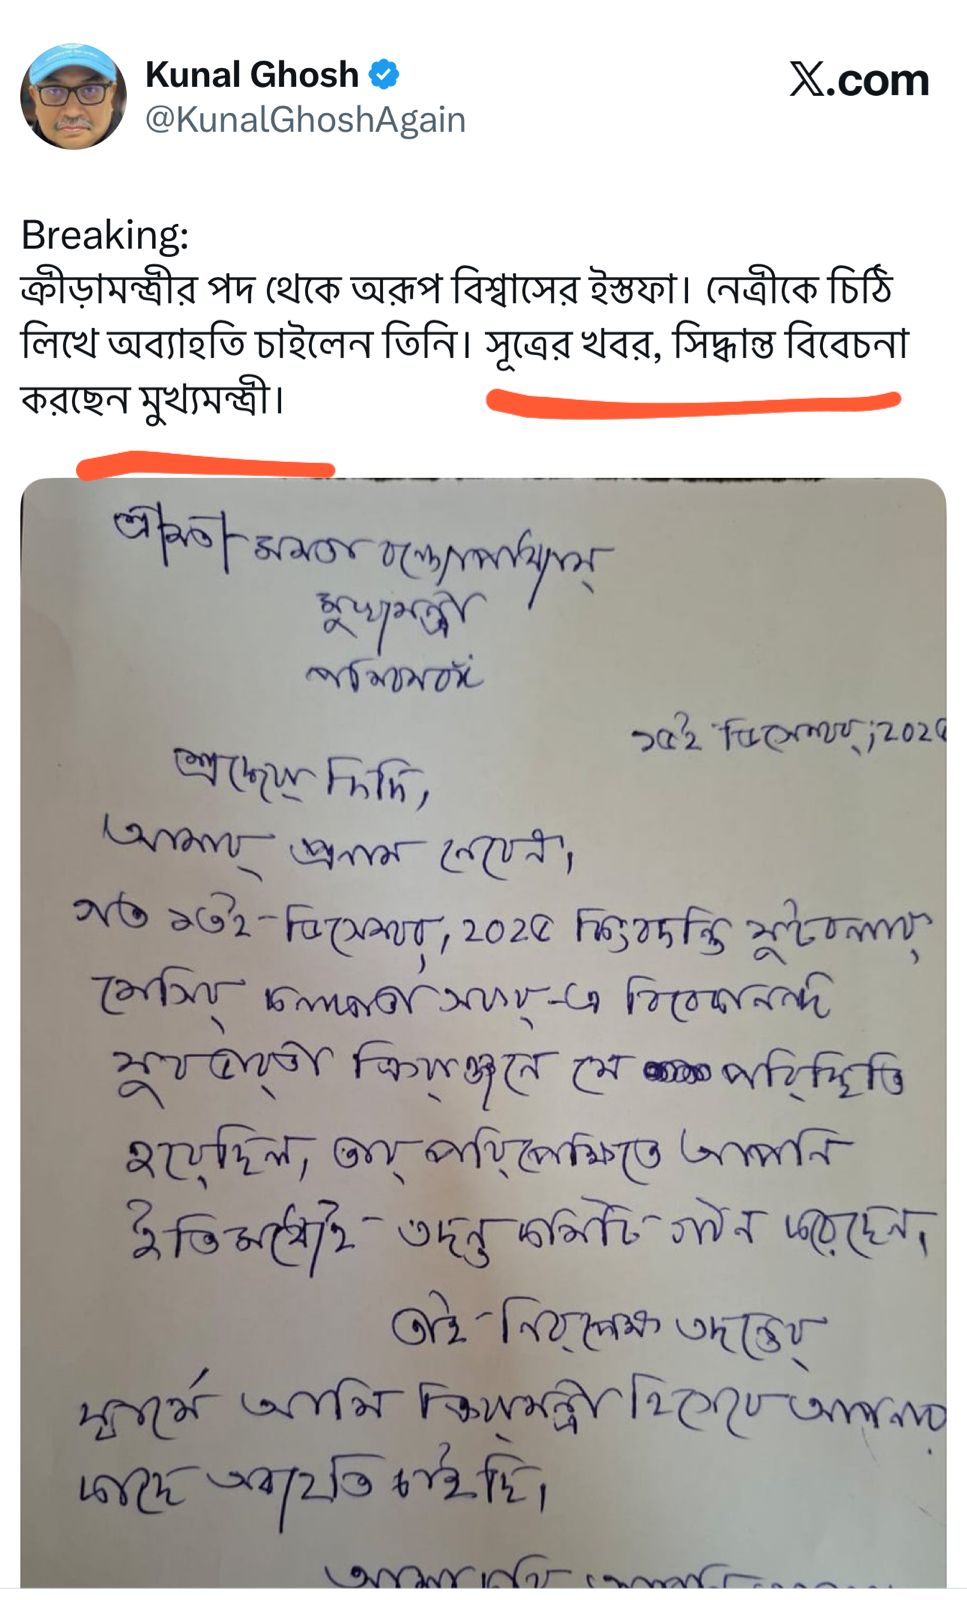 Kunal Ghosh
@KunalGhoshAgain
X.com
Breaking:
ক্রীড়ামন্ত্রীর পদ থেকে অরূপ বিশ্বাসের ইস্তফা। নেত্রীকে চিঠি
লিখে অব্যাহতি চাইলেন তিনি। সূত্রের খবর, সিদ্ধান্ত বিবেচনা
করছেন মুখ্যমন্ত্রী।
শ্রীমতী মমতা বন্দ্যোপাধ্যায়
মুখ্যমন্ত্রী
পশ্চিমবঙ্গ
১৫ই ডিসেম্বর, 202৫
শ্রদ্ধেয় দিদি,
আমার প্রনাম নেবেন।
গত ১৩ই ডিসেম্বর, 202৫ কিংবদন্তি ফুটবলার
মেসির কলকাতা সফর-এ বিবেকানন্দ
যুবভারতী ক্রিড়াঙ্গনে যে পরিস্থিতি
হয়েছিল, তার পরিপেক্ষিতে আপনি
ইতিমধ্যেই তদন্ত কমিটি গঠন করেছেন।
তাই নিরপেক্ষ তদন্তের
স্বার্থে আমি ক্রিড়ামন্ত্রী হিসেবে আপনার
কাছে অব্যহতি চাইছি।